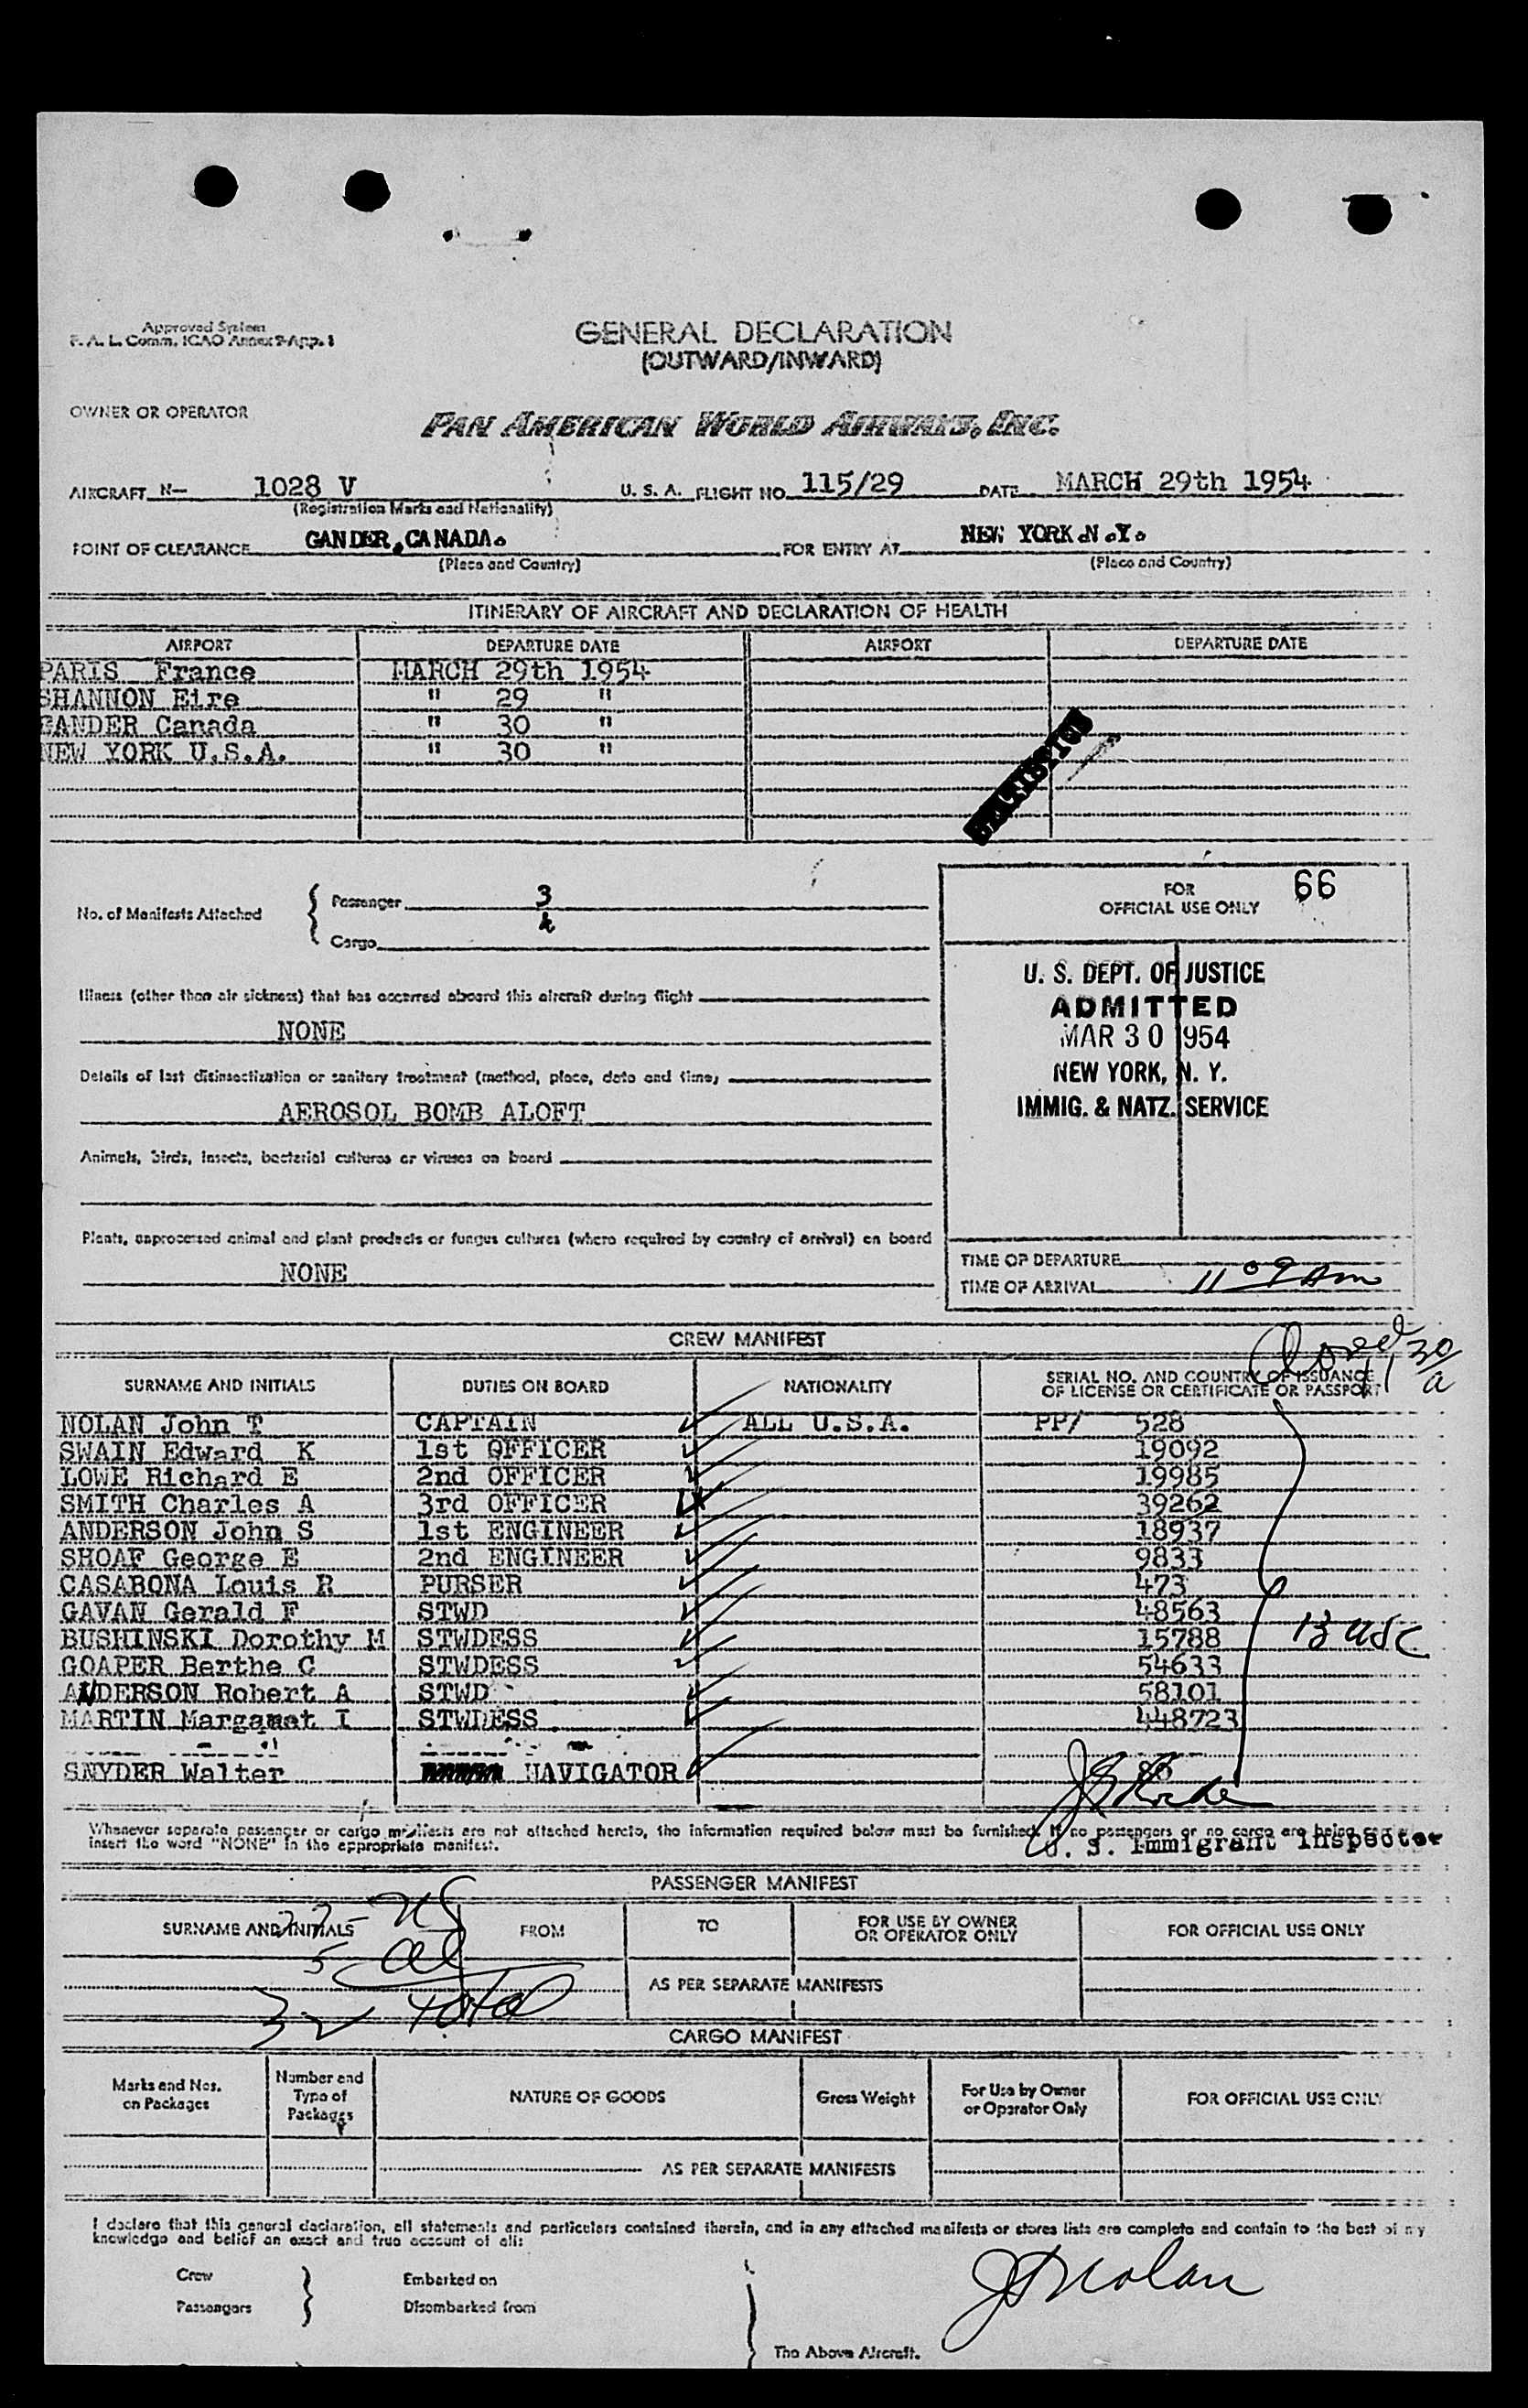 Approved System
F. A. L. Comm. ICAO Annex 9-App. 1
GENERAL DECLARATION
(OUTWARD/INWARD)
OWNER OR OPERATOR
PAN AMERICAN WORLD AIRWAYS, INC.
AIRCRAFT N- 1028 V U. S. A. FLIGHT NO. 115/29 DATE MARCH 29th 1954
(Registration Marks and Nationality)
POINT OF CLEARANCE GANDER, CANADA. FOR ENTRY AT NEW YORK N.Y.
(Place and Country) (Place and Country)
ITINERARY OF AIRCRAFT AND DECLARATION OF HEALTH
AIRPORT DEPARTURE DATE AIRPORT DEPARTURE DATE
PARIS France MARCH 29th 1954
SHANNON Eire " 29 "
GANDER Canada " 30 "
NEW YORK U.S.A. " 30 "
No. of Manifests Attached { Passenger 3
Cargo 4
FOR OFFICIAL USE ONLY 66
U. S. DEPT. OF JUSTICE
ADMITTED
MAR 30 1954
NEW YORK, N. Y.
IMMIG. & NATZ. SERVICE
Illness (other than air sickness) that has occurred aboard this aircraft during flight
NONE
Details of last disinsectization or sanitary treatment (method, place, date and time)
AEROSOL BOMB ALOFT
Animals, birds, insects, bacterial cultures or viruses on board
Plants, unprocessed animal and plant products or fungus cultures (where required by country of arrival) on board
NONE
TIME OF DEPARTURE
TIME OF ARRIVAL 11 09 Am
CREW MANIFEST
SURNAME AND INITIALS DUTIES ON BOARD NATIONALITY SERIAL NO. AND COUNTRY OF ISSUANCE
OF LICENSE OR CERTIFICATE OR PASSPORT
NOLAN John T CAPTAIN ALL U.S.A. PP/ 528
SWAIN Edward K 1st OFFICER 19092
LOWE Richard E 2nd OFFICER 19985
SMITH Charles A 3rd OFFICER 39262
ANDERSON John S 1st ENGINEER 18937
SHOAF George E 2nd ENGINEER 9833
CASABONA Louis R PURSER 473
GAVAN Gerald F STWD 48563
BUSHINSKI Dorothy M STWDESS 15788
13 USC
GOAPER Berthe C STWDESS 54633
ANDERSON Robert A STWD 58101
MARTIN Margaret I STWDESS 448723
SNYDER Walter NAVIGATOR
Whenever separate passenger or cargo manifests are not attached hereto, the information required below must be furnished. If no passengers or no cargo are being
insert the word "NONE" in the appropriate manifest.
U. S. Immigrant Inspector
PASSENGER MANIFEST
SURNAME AND INITIALS FROM TO FOR USE BY OWNER OR OPERATOR ONLY FOR OFFICIAL USE ONLY
AS PER SEPARATE MANIFESTS
32 total
CARGO MANIFEST
Marks and Nos. on Packages Number and Type of Packages NATURE OF GOODS Gross Weight For Use by Owner or Operator Only FOR OFFICIAL USE ONLY
AS PER SEPARATE MANIFESTS
I declare that this general declaration, all statements and particulars contained therein, and in any attached manifests or stores lists are complete and contain to the best of my
knowledge and belief an exact and true account of all:
Crew Embarked on
Passengers Disembarked from
JT Nolan
The Above Aircraft.